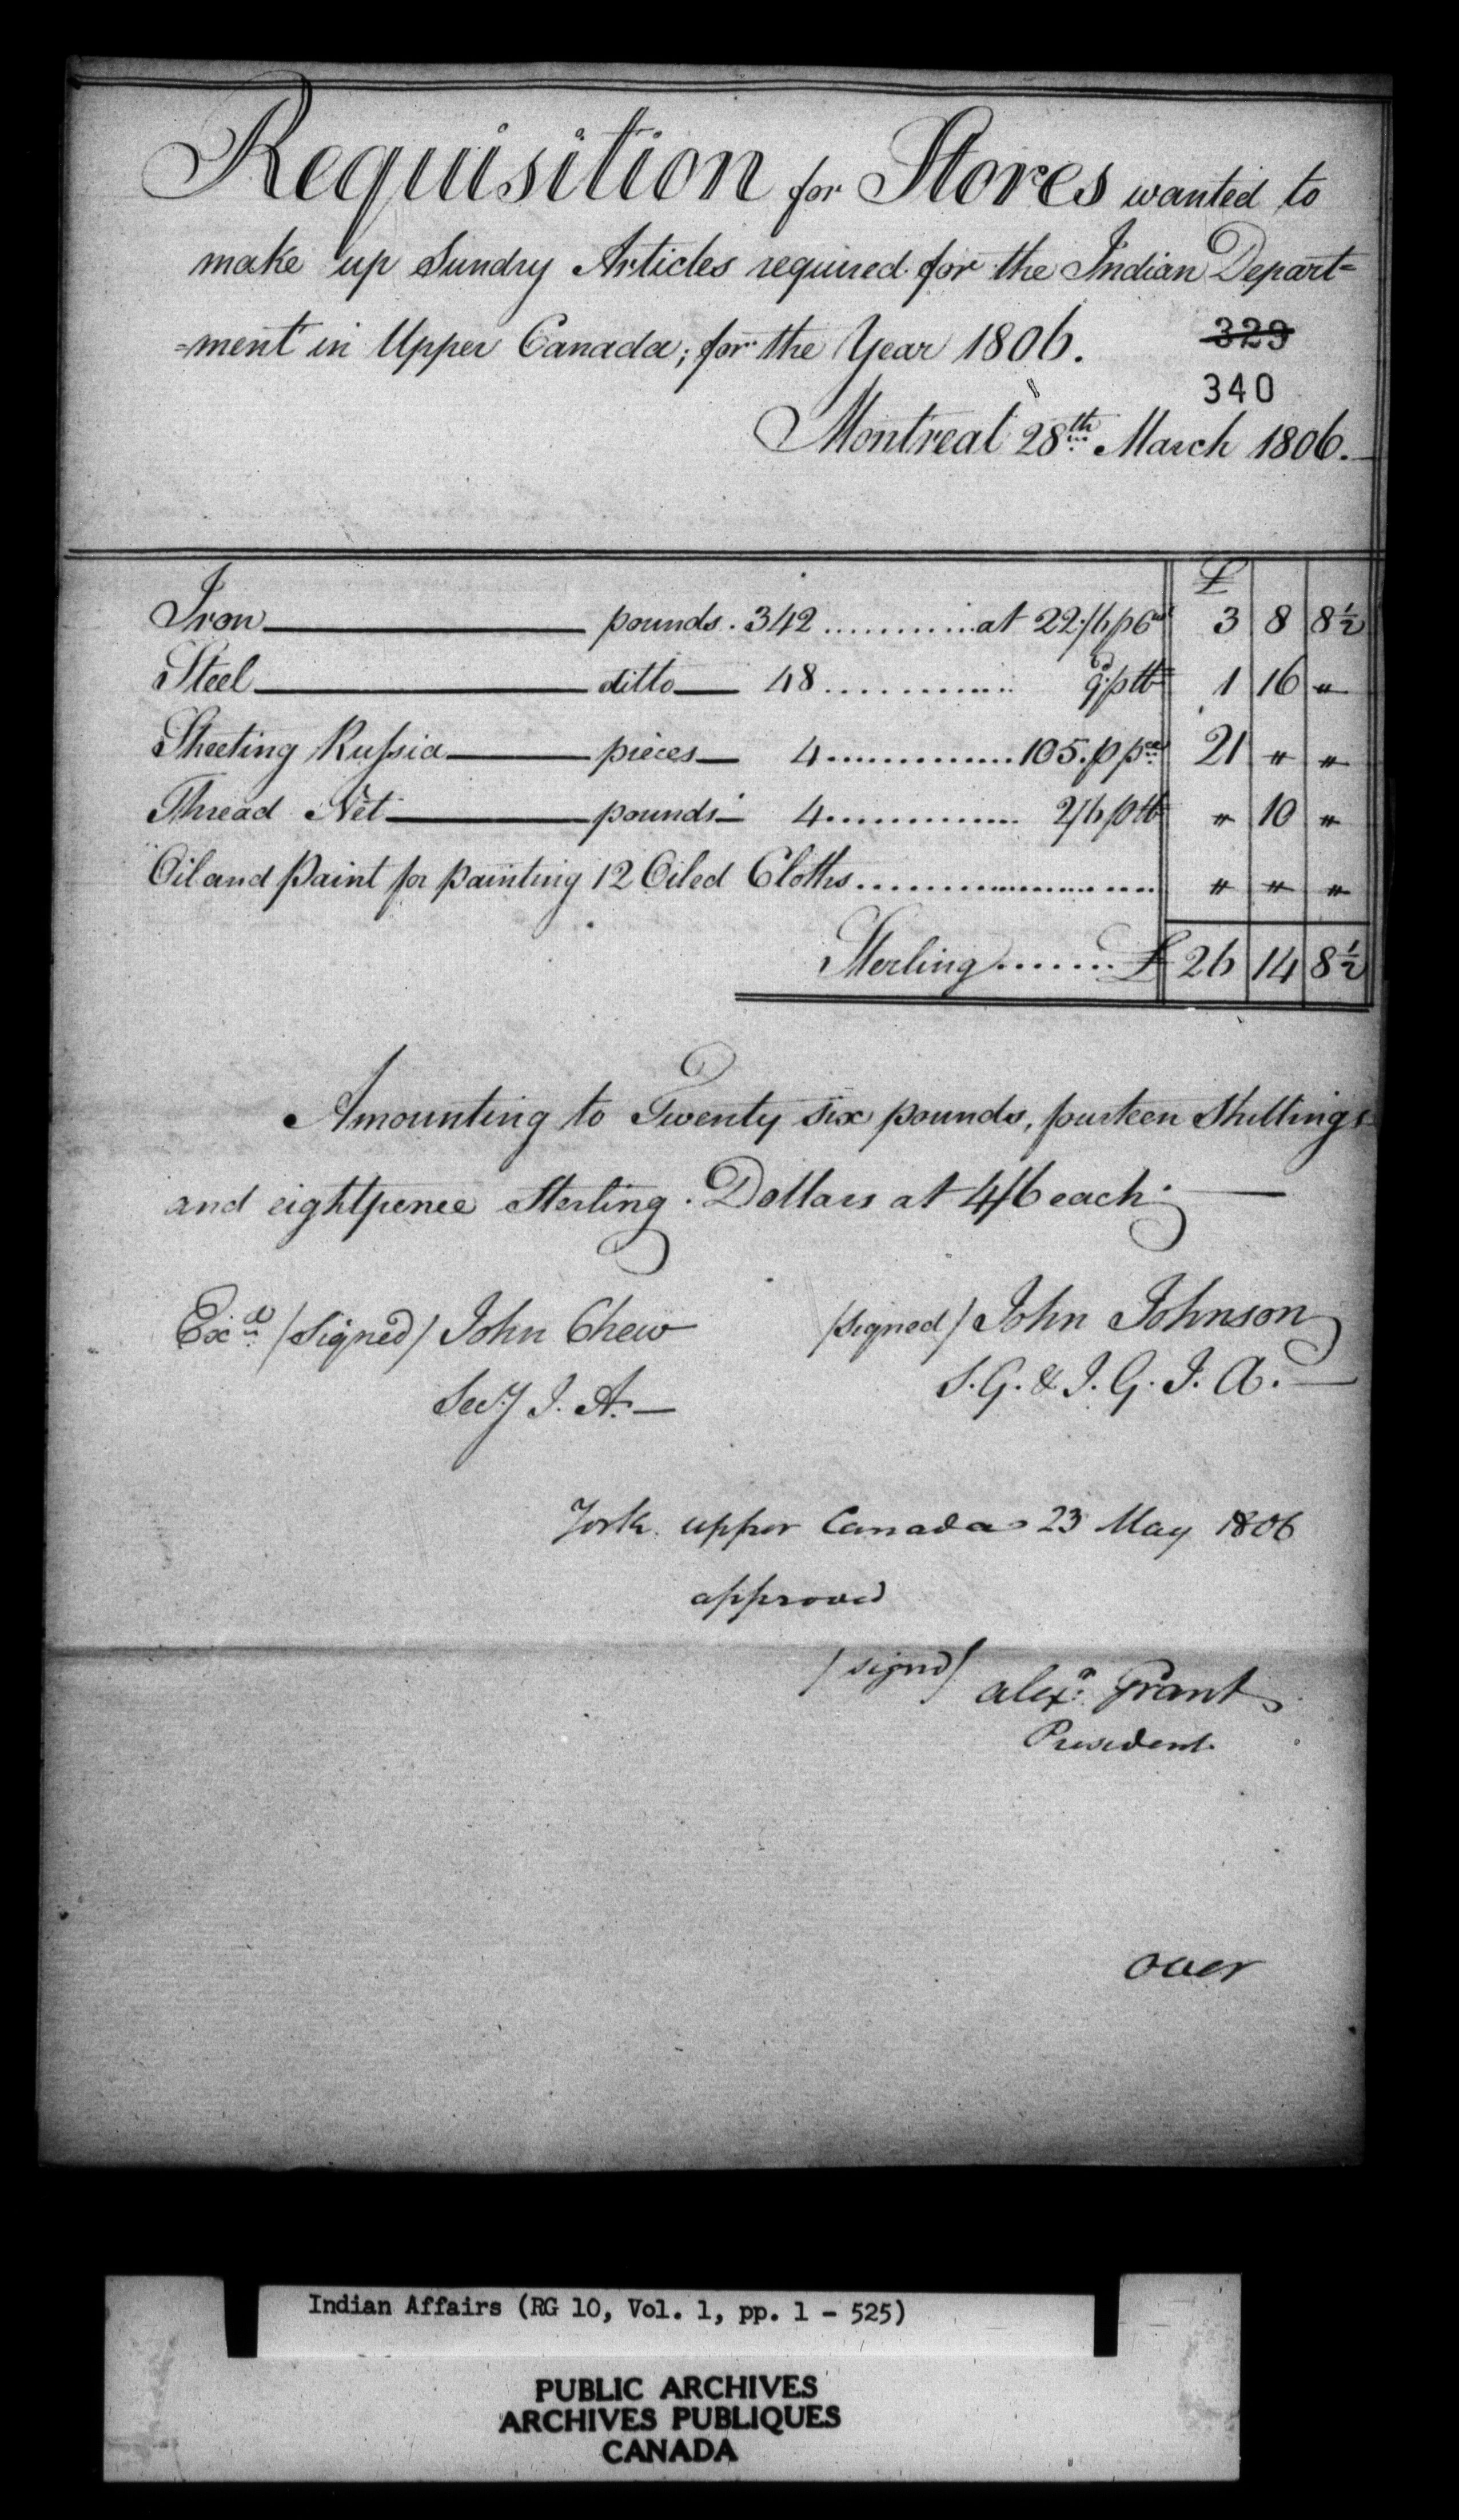 Requisition for Stores wanted to
make up Sundry Articles required for the Indian Depart=
=ment in Upper Canada; for the Year 1806.
329
340
Montreal 28th March 1806.
£
Iron pounds. 342 ............ at 22/6 p Ct 3 8 8½
Steel ditto 48 ............ 9d p lb 1 16 "
Sheeting Russia pieces 4 ............ 105. p pce 21 " "
Thread Net pounds 4 ............ 2/6 p lb " 10 "
Oil and Paint for painting 12 Oiled Cloths ............ " " "
Sterling ........ £ 26 14 8½
Amounting to Twenty six pounds, fourteen Shillings
and eightpence Sterling. Dollars at 4/6 each.
Exd /Signed/ John Chew
Secy I. A.
/Signed/ John Johnson
S. G. & I. G. I. A.
York upper Canada 23 May 1806
approved
/signd/ alexr Grant
President
over
Indian Affairs (RG 10, Vol. 1, pp. 1 - 525)
PUBLIC ARCHIVES
ARCHIVES PUBLIQUES
CANADA